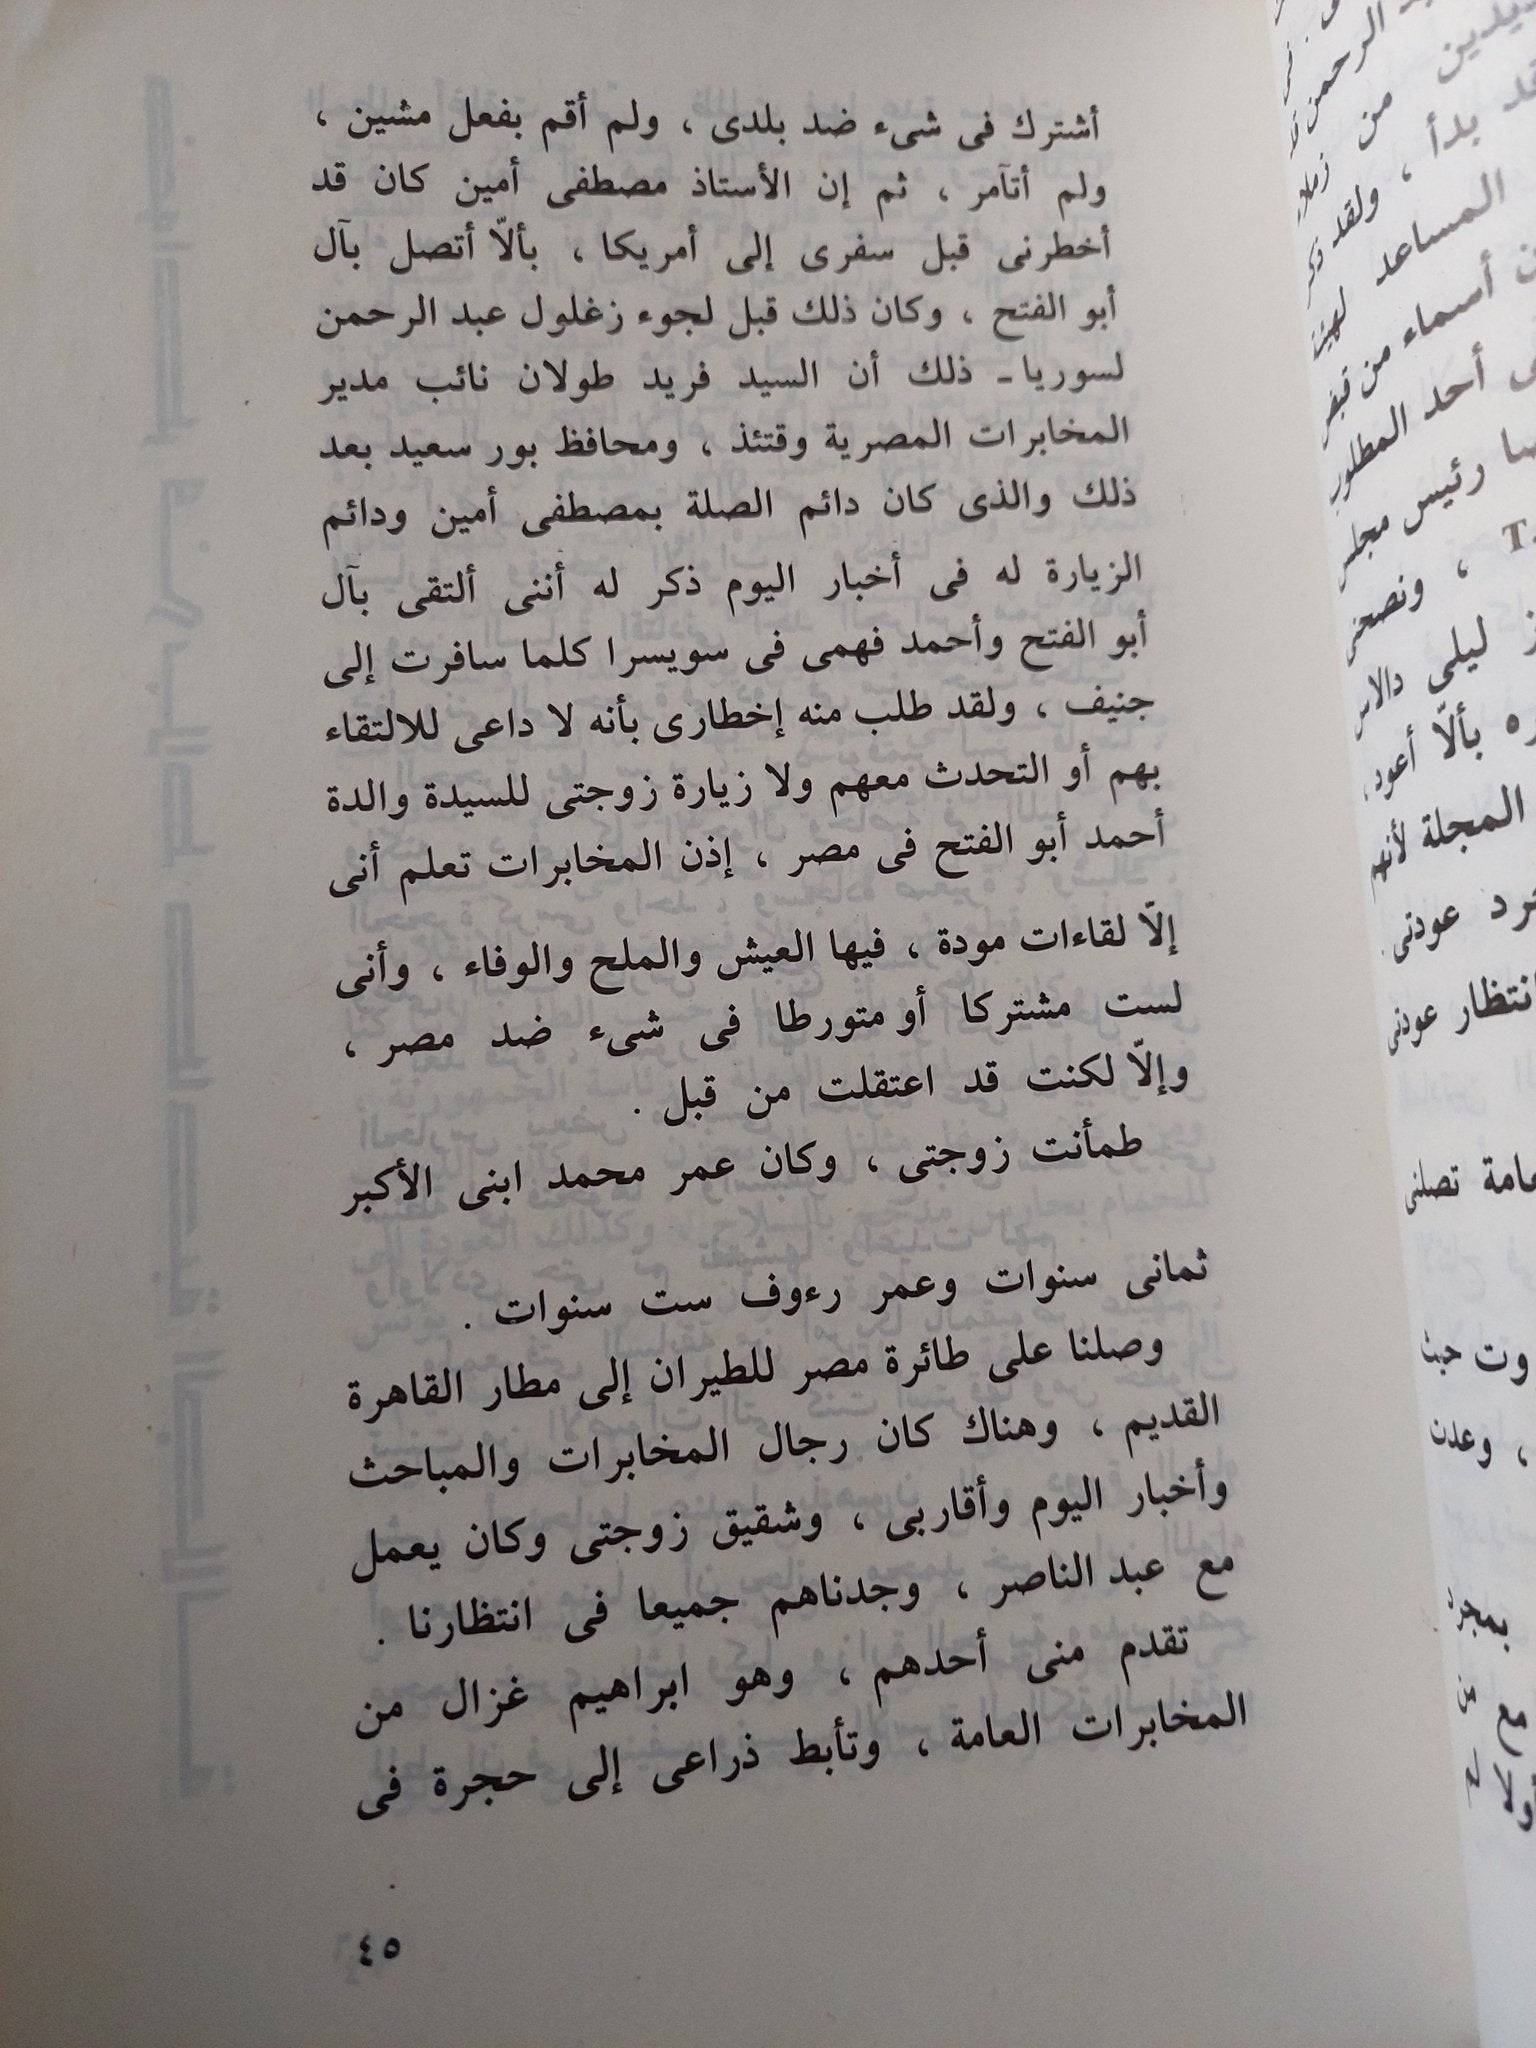 أشترك فى شىء ضد بلدى ، ولم أقم بفعل مشين ،
ولم أتآمر ، ثم إن الأستاذ مصطفى أمين كان قد
أخطرنى قبل سفرى إلى أمريكا ، بألاّ أتصل بآل
أبو الفتح ، وكان ذلك قبل لجوء زغلول عبد الرحمن
لسوريا ـ ذلك أن السيد فريد طولان نائب مدير
المخابرات المصرية وقتئذ ، ومحافظ بور سعيد بعد
ذلك والذى كان دائم الصلة بمصطفى أمين ودائم
الزيارة له فى أخبار اليوم ذكر له أننى ألتقى بآل
أبو الفتح وأحمد فهمى فى سويسرا كلما سافرت إلى
جنيف ، ولقد طلب منه إخطارى بأنه لا داعى للالتقاء
بهم أو التحدث معهم ولا زيارة زوجتى للسيدة والدة
أحمد أبو الفتح فى مصر ، إذن المخابرات تعلم أنى
إلاّ لقاءات مودة ، فيها العيش والملح والوفاء ، وأنى
لست مشتركا أو متورطا فى شىء ضد مصر ،
وإلاّ لكنت قد اعتقلت من قبل .
طمأنت زوجتى ، وكان عمر محمد ابنى الأكبر
ثمانى سنوات وعمر رءوف ست سنوات .
وصلنا على طائرة مصر للطيران إلى مطار القاهرة
القديم ، وهناك كان رجال المخابرات والمباحث
وأخبار اليوم وأقاربى ، وشقيق زوجتى وكان يعمل
مع عبد الناصر ، وجدناهم جميعا فى انتظارنا .
تقدم منى أحدهم ، وهو ابراهيم غزال من
المخابرات العامة ، وتأبط ذراعى إلى حجرة فى
٤٥
الرحمن
من
قد بدأ ، ولقد
المساعد
أسماء من
أحد المطلوب
رئيس مجلس
، ونصحنى
ليلى دالاس
بألاّ أعود
المجلة لأنهم
عودتى
انتظار عودتى
تصلنى
حيث
، وعدت
بمجرد
مع من
أولا لم